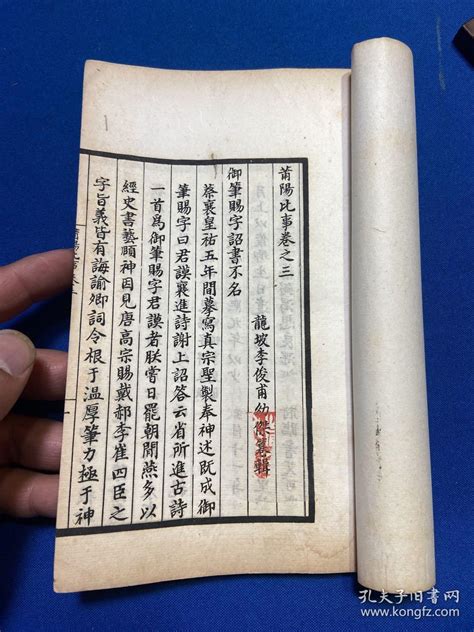 莆陽比事卷之三
龍坡李俊甫幼傑纂輯
御筆賜字詔書不名
蔡襄皇祐五年間摹寫真宗聖製奉神述既成御
筆賜字曰君謨襄進詩謝上詔答云省所進古詩
一首爲御筆賜字君謨者朕嘗日罷朝閒燕多以
經史書藝頤神因見唐高宗賜戴郝李崔四臣之
字旨義皆有誨諭卿詞令根于温厚筆力極于神
孔夫子旧书网
www.kongfz.com